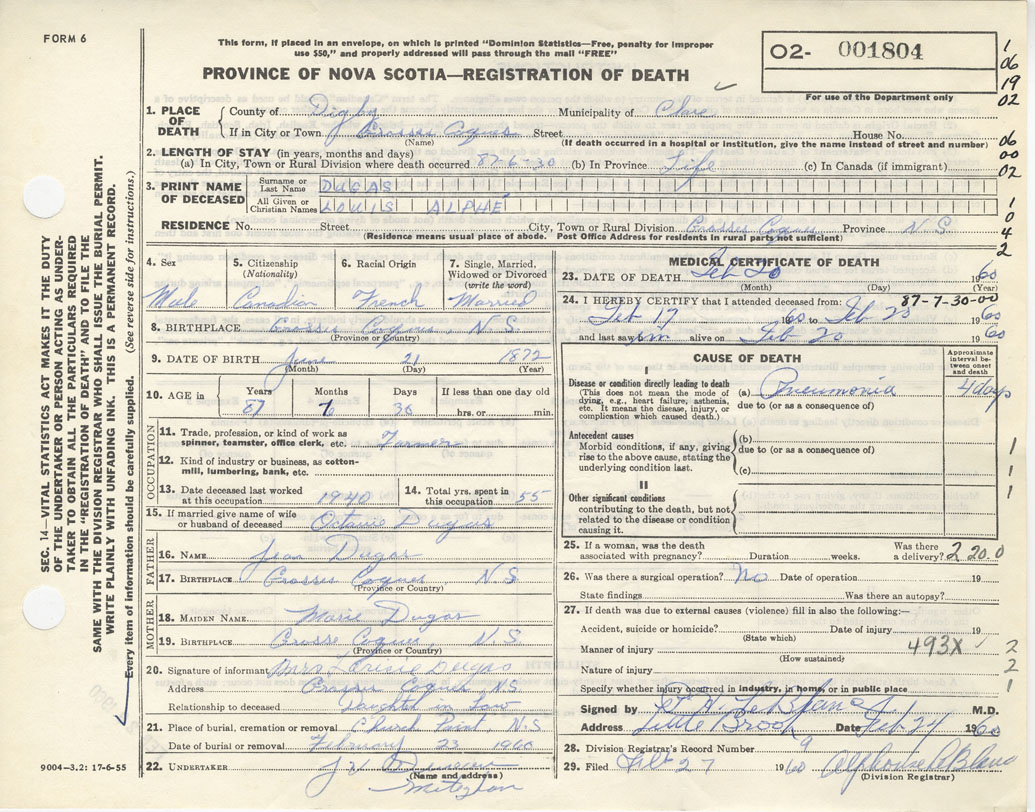 FORM 6
This form, if placed in an envelope, on which is printed "Dominion Statistics—Free, penalty for improper
use $50," and properly addressed will pass through the mail "FREE"
PROVINCE OF NOVA SCOTIA—REGISTRATION OF DEATH
02- 001804
For use of the Department only
1
06
19
02
06
00
02
1
0
4
2
1. PLACE OF DEATH County of Digby Municipality of Clare
If in City or Town Grosses Coques Street House No.
(Name) (If death occurred in a hospital or institution, give the name instead of street and number)
2. LENGTH OF STAY (in years, months and days)
(a) In City, Town or Rural Division where death occurred 87-6-30 (b) In Province Life (c) In Canada (if immigrant)
3. PRINT NAME OF DECEASED Surname or Last Name DUGAS
All Given or Christian Names LOUIS ALPHE
RESIDENCE No. Street City, Town or Rural Division Grosses Coques Province N S
(Residence means usual place of abode. Post Office Address for residents in rural parts not sufficient)
4. Sex Male
5. Citizenship (Nationality) Canadian
6. Racial Origin French
7. Single, Married, Widowed or Divorced (write the word) Married
8. BIRTHPLACE Grosses Coques, N.S.
(Province or Country)
9. DATE OF BIRTH June 21 1872
(Month) (Day) (Year)
10. AGE in Years Months Days If less than one day old
87 7 30 hrs. or min.
OCCUPATION
11. Trade, profession, or kind of work as
spinner, teamster, office clerk, etc. Farmer
12. Kind of industry or business, as cotton-
mill, lumbering, bank, etc.
13. Date deceased last worked at this occupation 1940
14. Total yrs. spent in this occupation 55
15. If married give name of wife
or husband of deceased Octavie Dugas
FATHER
16. NAME Jean Dugas
17. BIRTHPLACE Grosses Coques, N.S.
(Province or Country)
MOTHER
18. MAIDEN NAME Marie Dugas
19. BIRTHPLACE Grosse Coques, N.S.
(Province or Country)
20. Signature of informant Mrs Dugas
Address Grosses Coques, N.S.
Relationship to deceased Daughter in Law
21. Place of burial, cremation or removal Church Point, N.S
Date of burial or removal February 23 1960
22. UNDERTAKER
(Name and address)
Meteghan
MEDICAL CERTIFICATE OF DEATH
23. DATE OF DEATH Feb 20 1960
(Month) (Day) (Year)
24. I HEREBY CERTIFY that I attended deceased from: 87-7-30-00
Feb 17 1960 to Feb 20 1960
and last saw him alive on Feb 20 1960
CAUSE OF DEATH
Approximate interval between onset and death
I
Disease or condition directly leading to death (a) Pneumonia 4 days
(This does not mean the mode of dying, e.g., heart failure, asthenia, etc. It means the disease, injury, or complication which caused death.) due to (or as a consequence of)
Antecedent causes (b)
Morbid conditions, if any, giving rise to the above cause, stating the underlying condition last. due to (or as a consequence of) 1
(c) 1
II 1
Other significant conditions
contributing to the death, but not
related to the disease or condition
causing it.
25. If a woman, was the death associated with pregnancy? Duration weeks. Was there a delivery? 2 20.0
26. Was there a surgical operation? No Date of operation 19
State findings Was there an autopsy?
27. If death was due to external causes (violence) fill in also the following:—
Accident, suicide or homicide? Date of injury 19
(State which)
Manner of injury 493X 2
(How sustained)
Nature of injury 2
Specify whether injury occurred in industry, in home, or in public place 1
Signed by LeBlanc M.D.
Address Little Brook Date Feb 24 1960
28. Division Registrar's Record Number 9
29. Filed Feb 27 1960 Alphonse LeBlanc
(Division Registrar)
SEC. 14—VITAL STATISTICS ACT MAKES IT THE DUTY
OF THE UNDERTAKER OR PERSON ACTING AS UNDER-
TAKER TO OBTAIN ALL THE PARTICULARS REQUIRED
IN THE "REGISTRATION OF DEATH" AND TO FILE THE
SAME WITH THE DIVISION REGISTRAR WHO SHALL ISSUE THE BURIAL PERMIT.
WRITE PLAINLY WITH UNFADING INK. THIS IS A PERMANENT RECORD.
Every item of information should be carefully supplied. (See reverse side for instructions.)
9004-3.2: 17-6-55